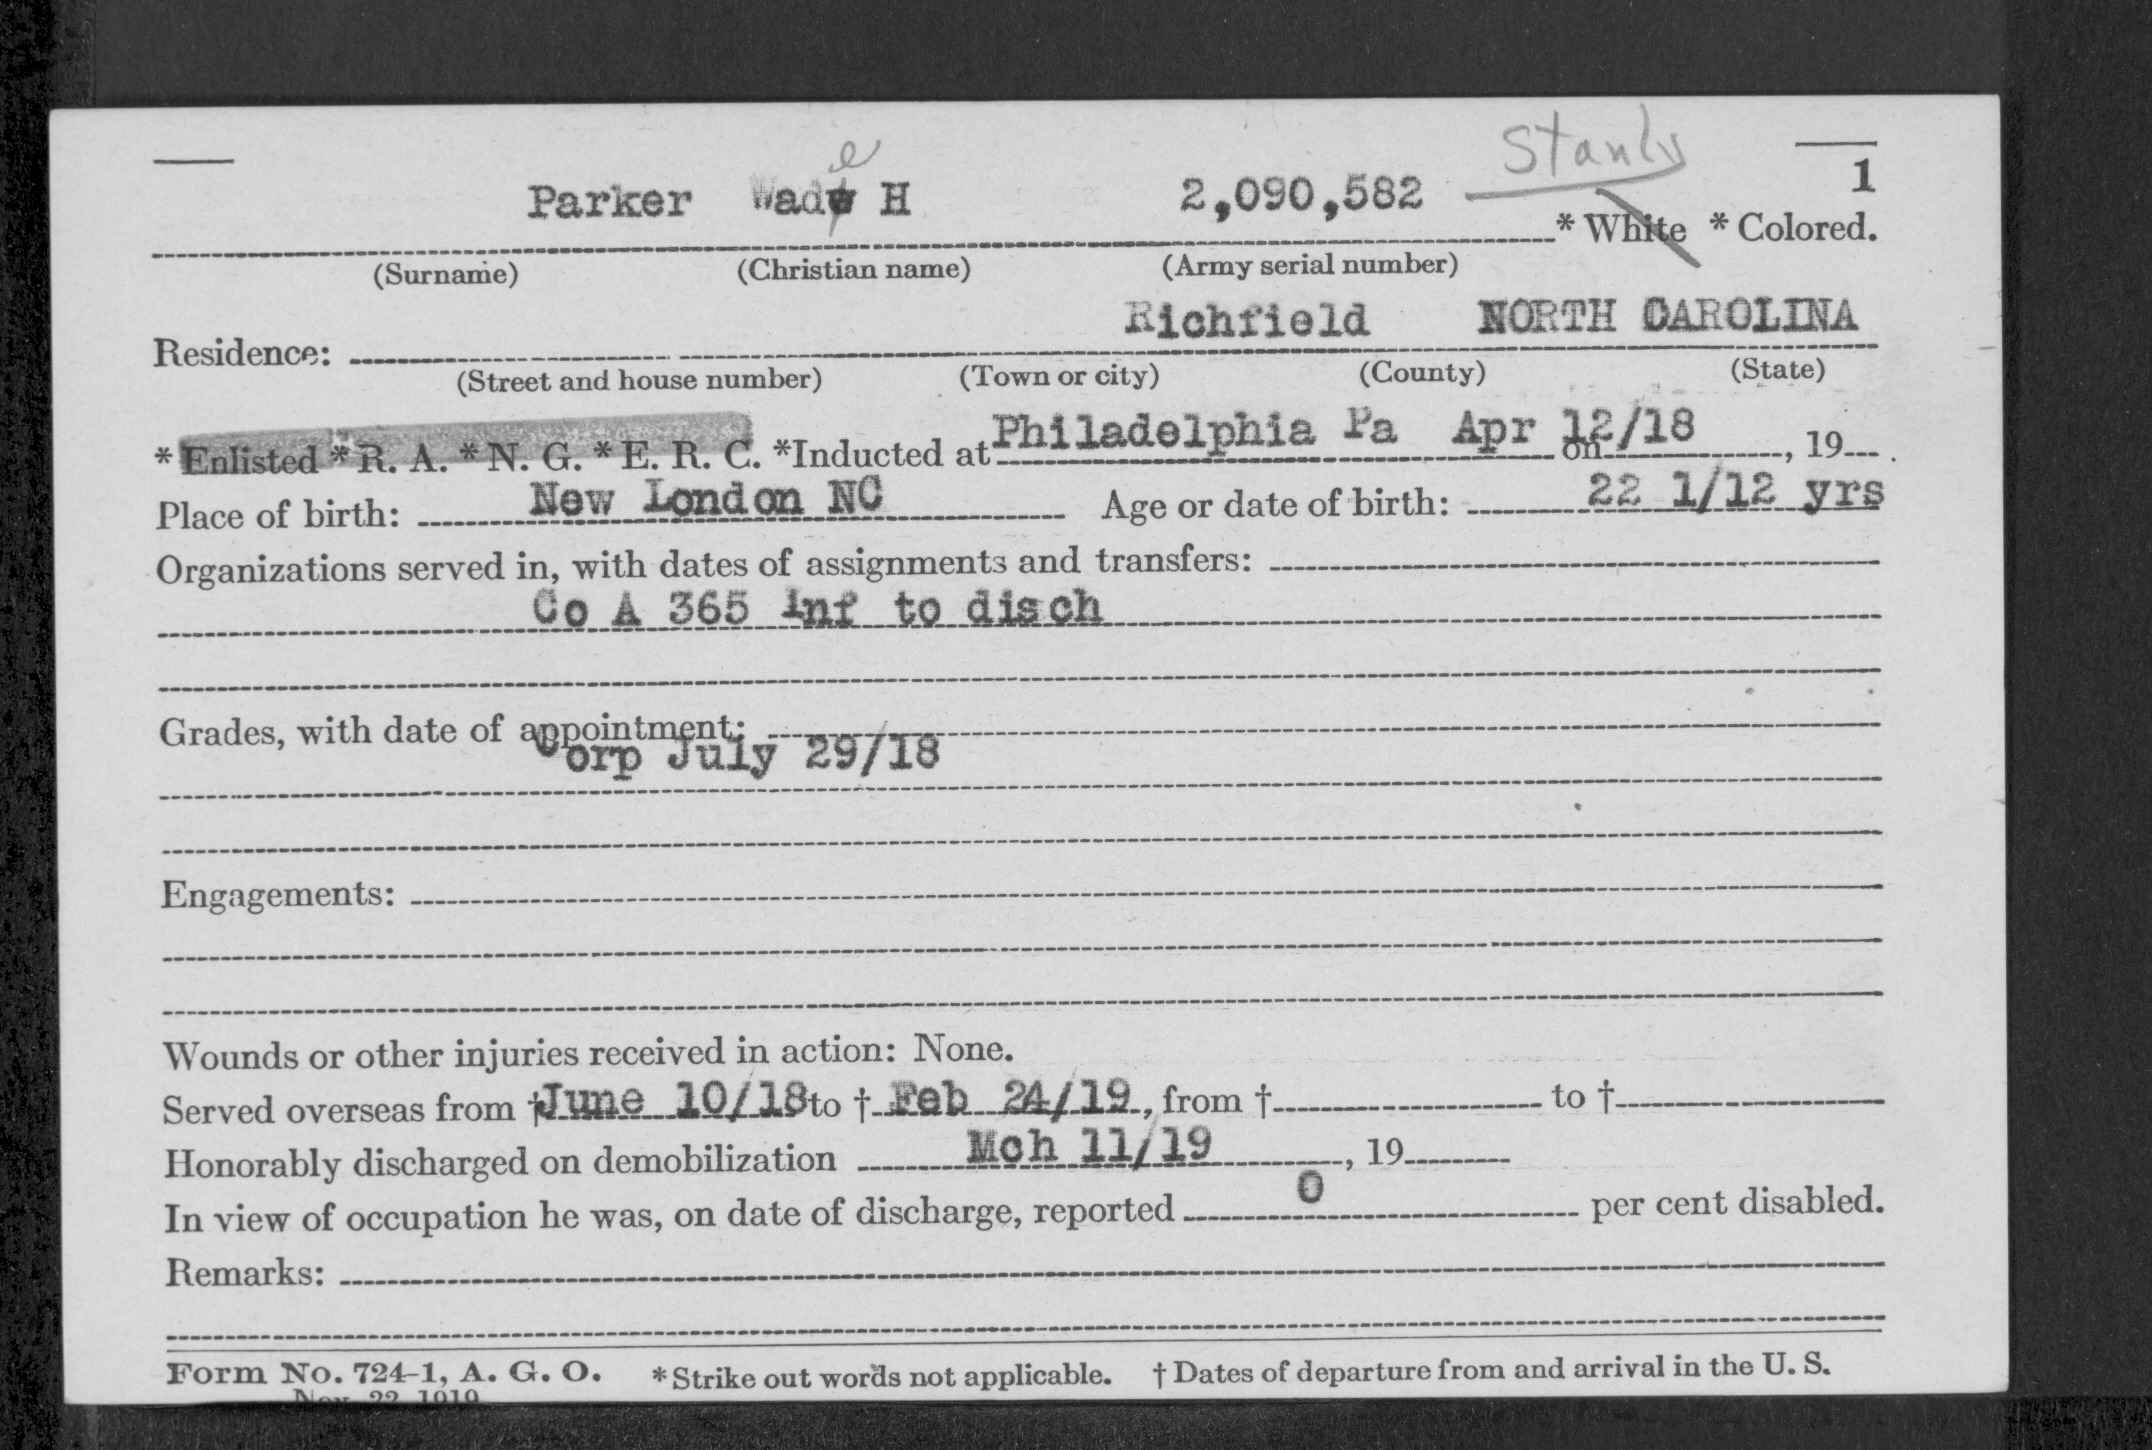 Stanly
1
Parker Wade H 2,090,582 * White * Colored.
(Surname) (Christian name) (Army serial number)
Richfield NORTH CAROLINA
Residence:
(Street and house number) (Town or city) (County) (State)
* Enlisted * R. A. * N. G. * E. R. C. *Inducted at Philadelphia Pa Apr 12/18 on , 19 .
Place of birth: New London NC Age or date of birth: 22 1/12 yrs
Organizations served in, with dates of assignments and transfers:
Co A 365 Inf to disch
Grades, with date of appointment:
Corp July 29/18
Engagements:
Wounds or other injuries received in action: None.
Served overseas from † June 10/18 to † Feb 24/19, from † to †
Honorably discharged on demobilization Mch 11/19 , 19
In view of occupation he was, on date of discharge, reported 0 per cent disabled.
Remarks:
Form No. 724-1, A. G. O. * Strike out words not applicable. † Dates of departure from and arrival in the U. S.
Nov. 22 1919